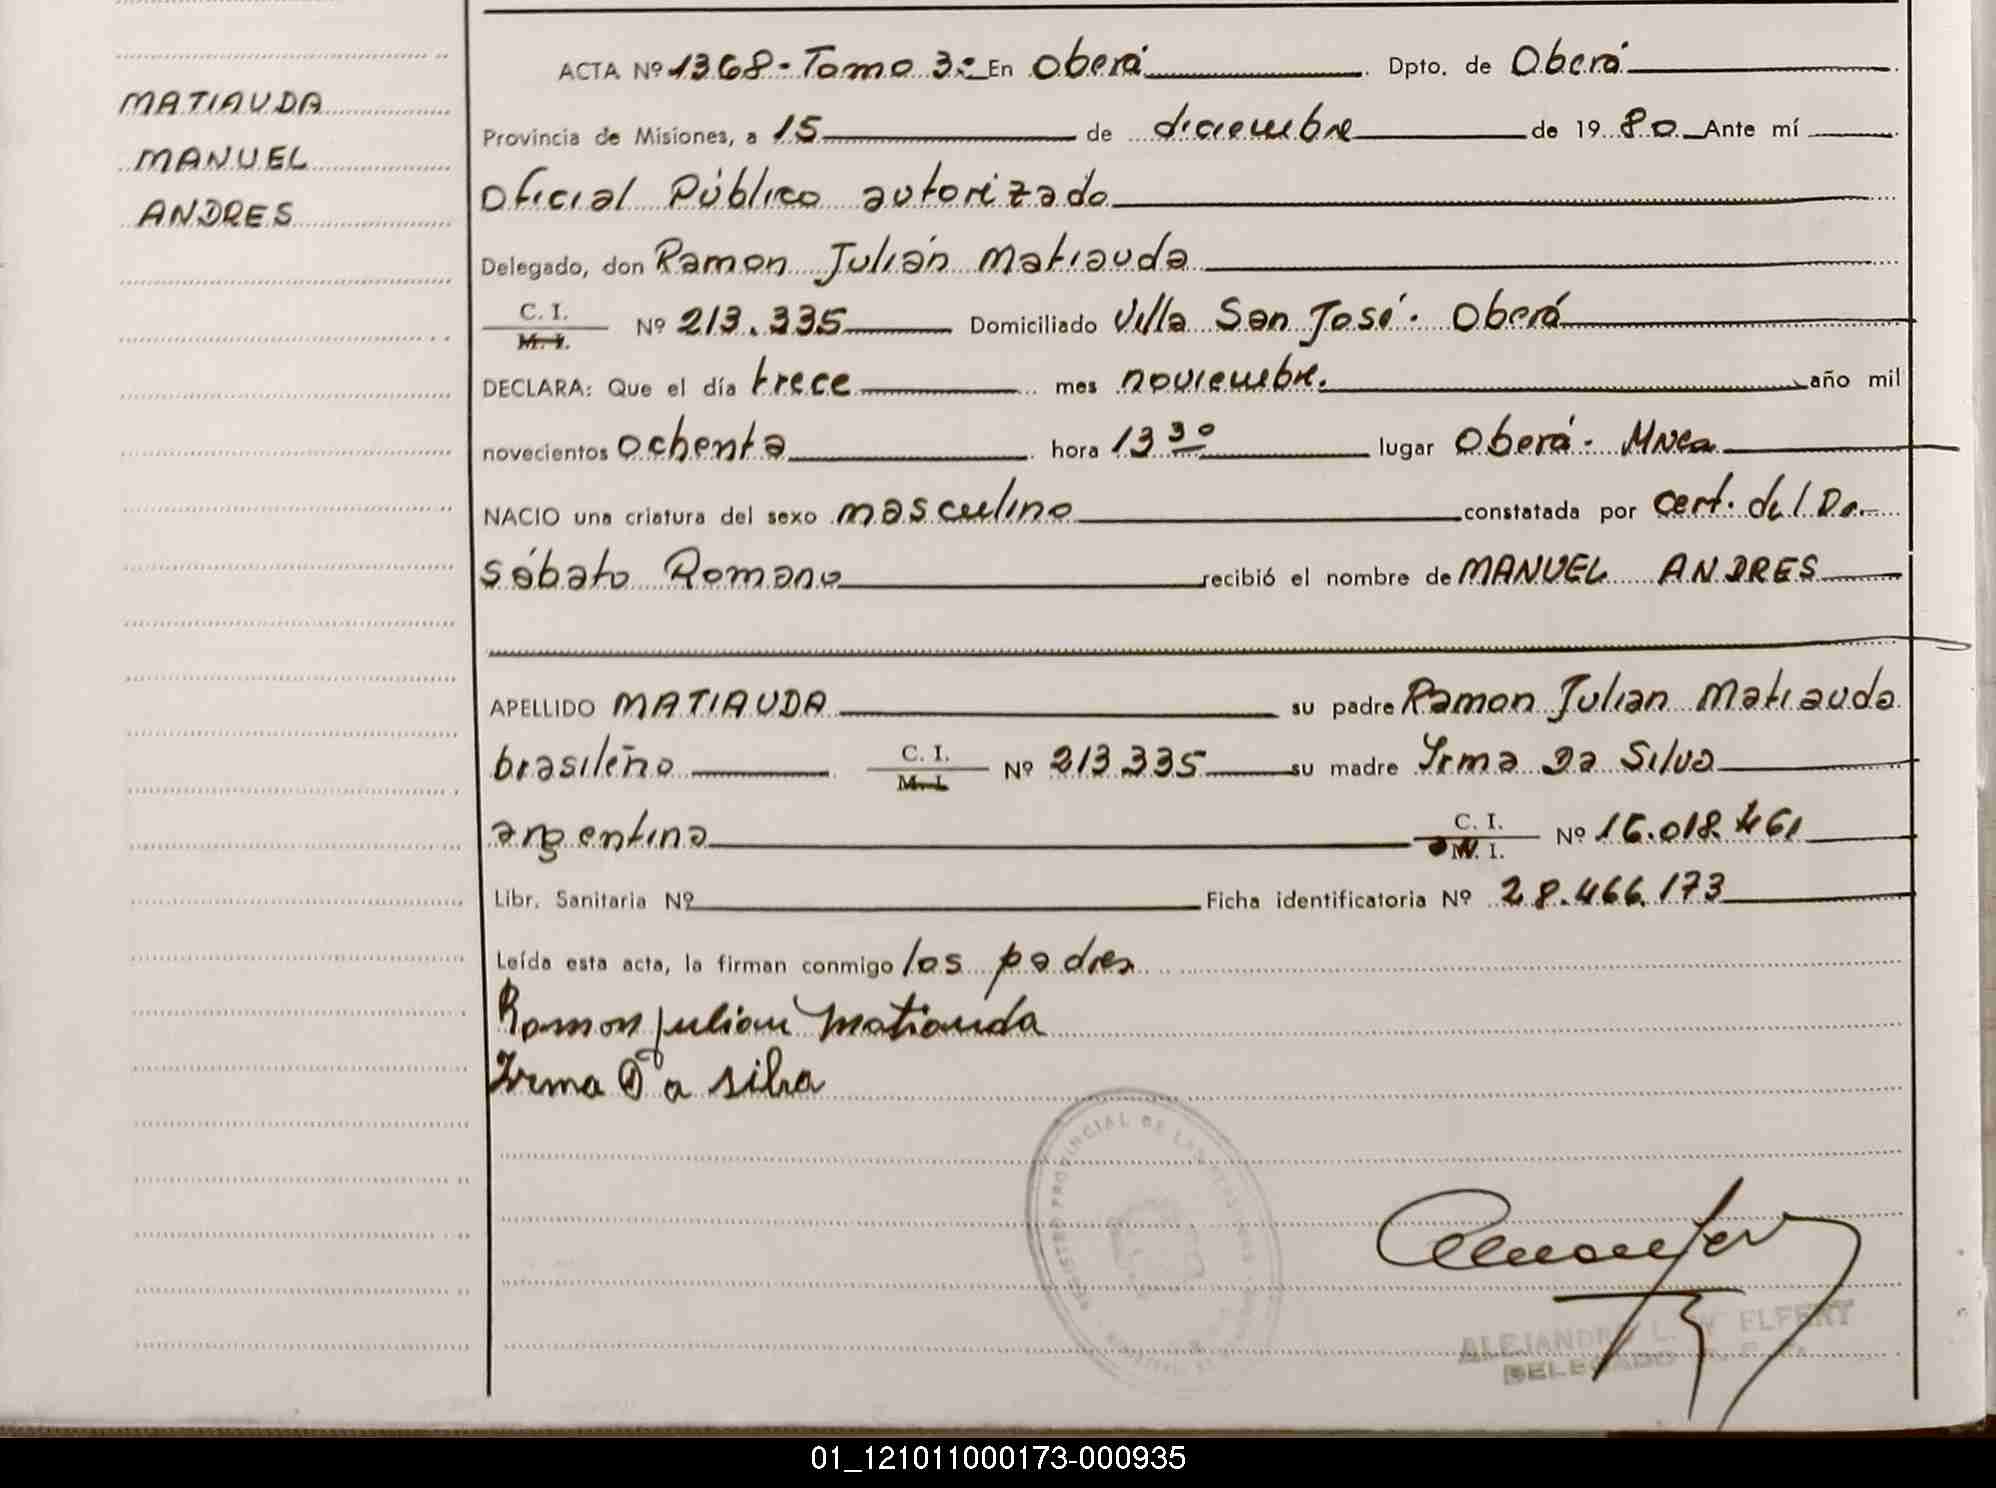 MATIAUDA
MANUEL
ANDRES
ACTA Nº 1368 - Tomo 3º En Oberá Dpto. de Oberá
Provincia de Misiones, a 15 de diciembre de 19 80 Ante mí
Oficial Público autorizado
Delegado, don Ramon Julián Matiauda
C. I.
M. I. Nº 213.335 Domiciliado Villa San José - Oberá
DECLARA: Que el día trece mes noviembre. año mil
novecientos ochenta hora 13 30 lugar Oberá - Mnes
NACIO una criatura del sexo masculino constatada por cert. del Dr.
Sábato Romano recibió el nombre de MANUEL ANDRES
APELLIDO MATIAUDA su padre Ramon Julian Matiauda
brasileño C. I.
M. I. Nº 213.335 su madre Irma Da Silva
argentina C. I.
M. I. Nº 16.018.461
Libr. Sanitaria Nº Ficha identificatoria Nº 28.466.173
Leída esta acta, la firman conmigo los padres
Ramon Julian Matiauda
Irma Da silva
REGISTRO PROVINCIAL DE LAS PERSONAS
ALEJANDRO L. ELFERT
DELEGADO
01_121011000173-000935